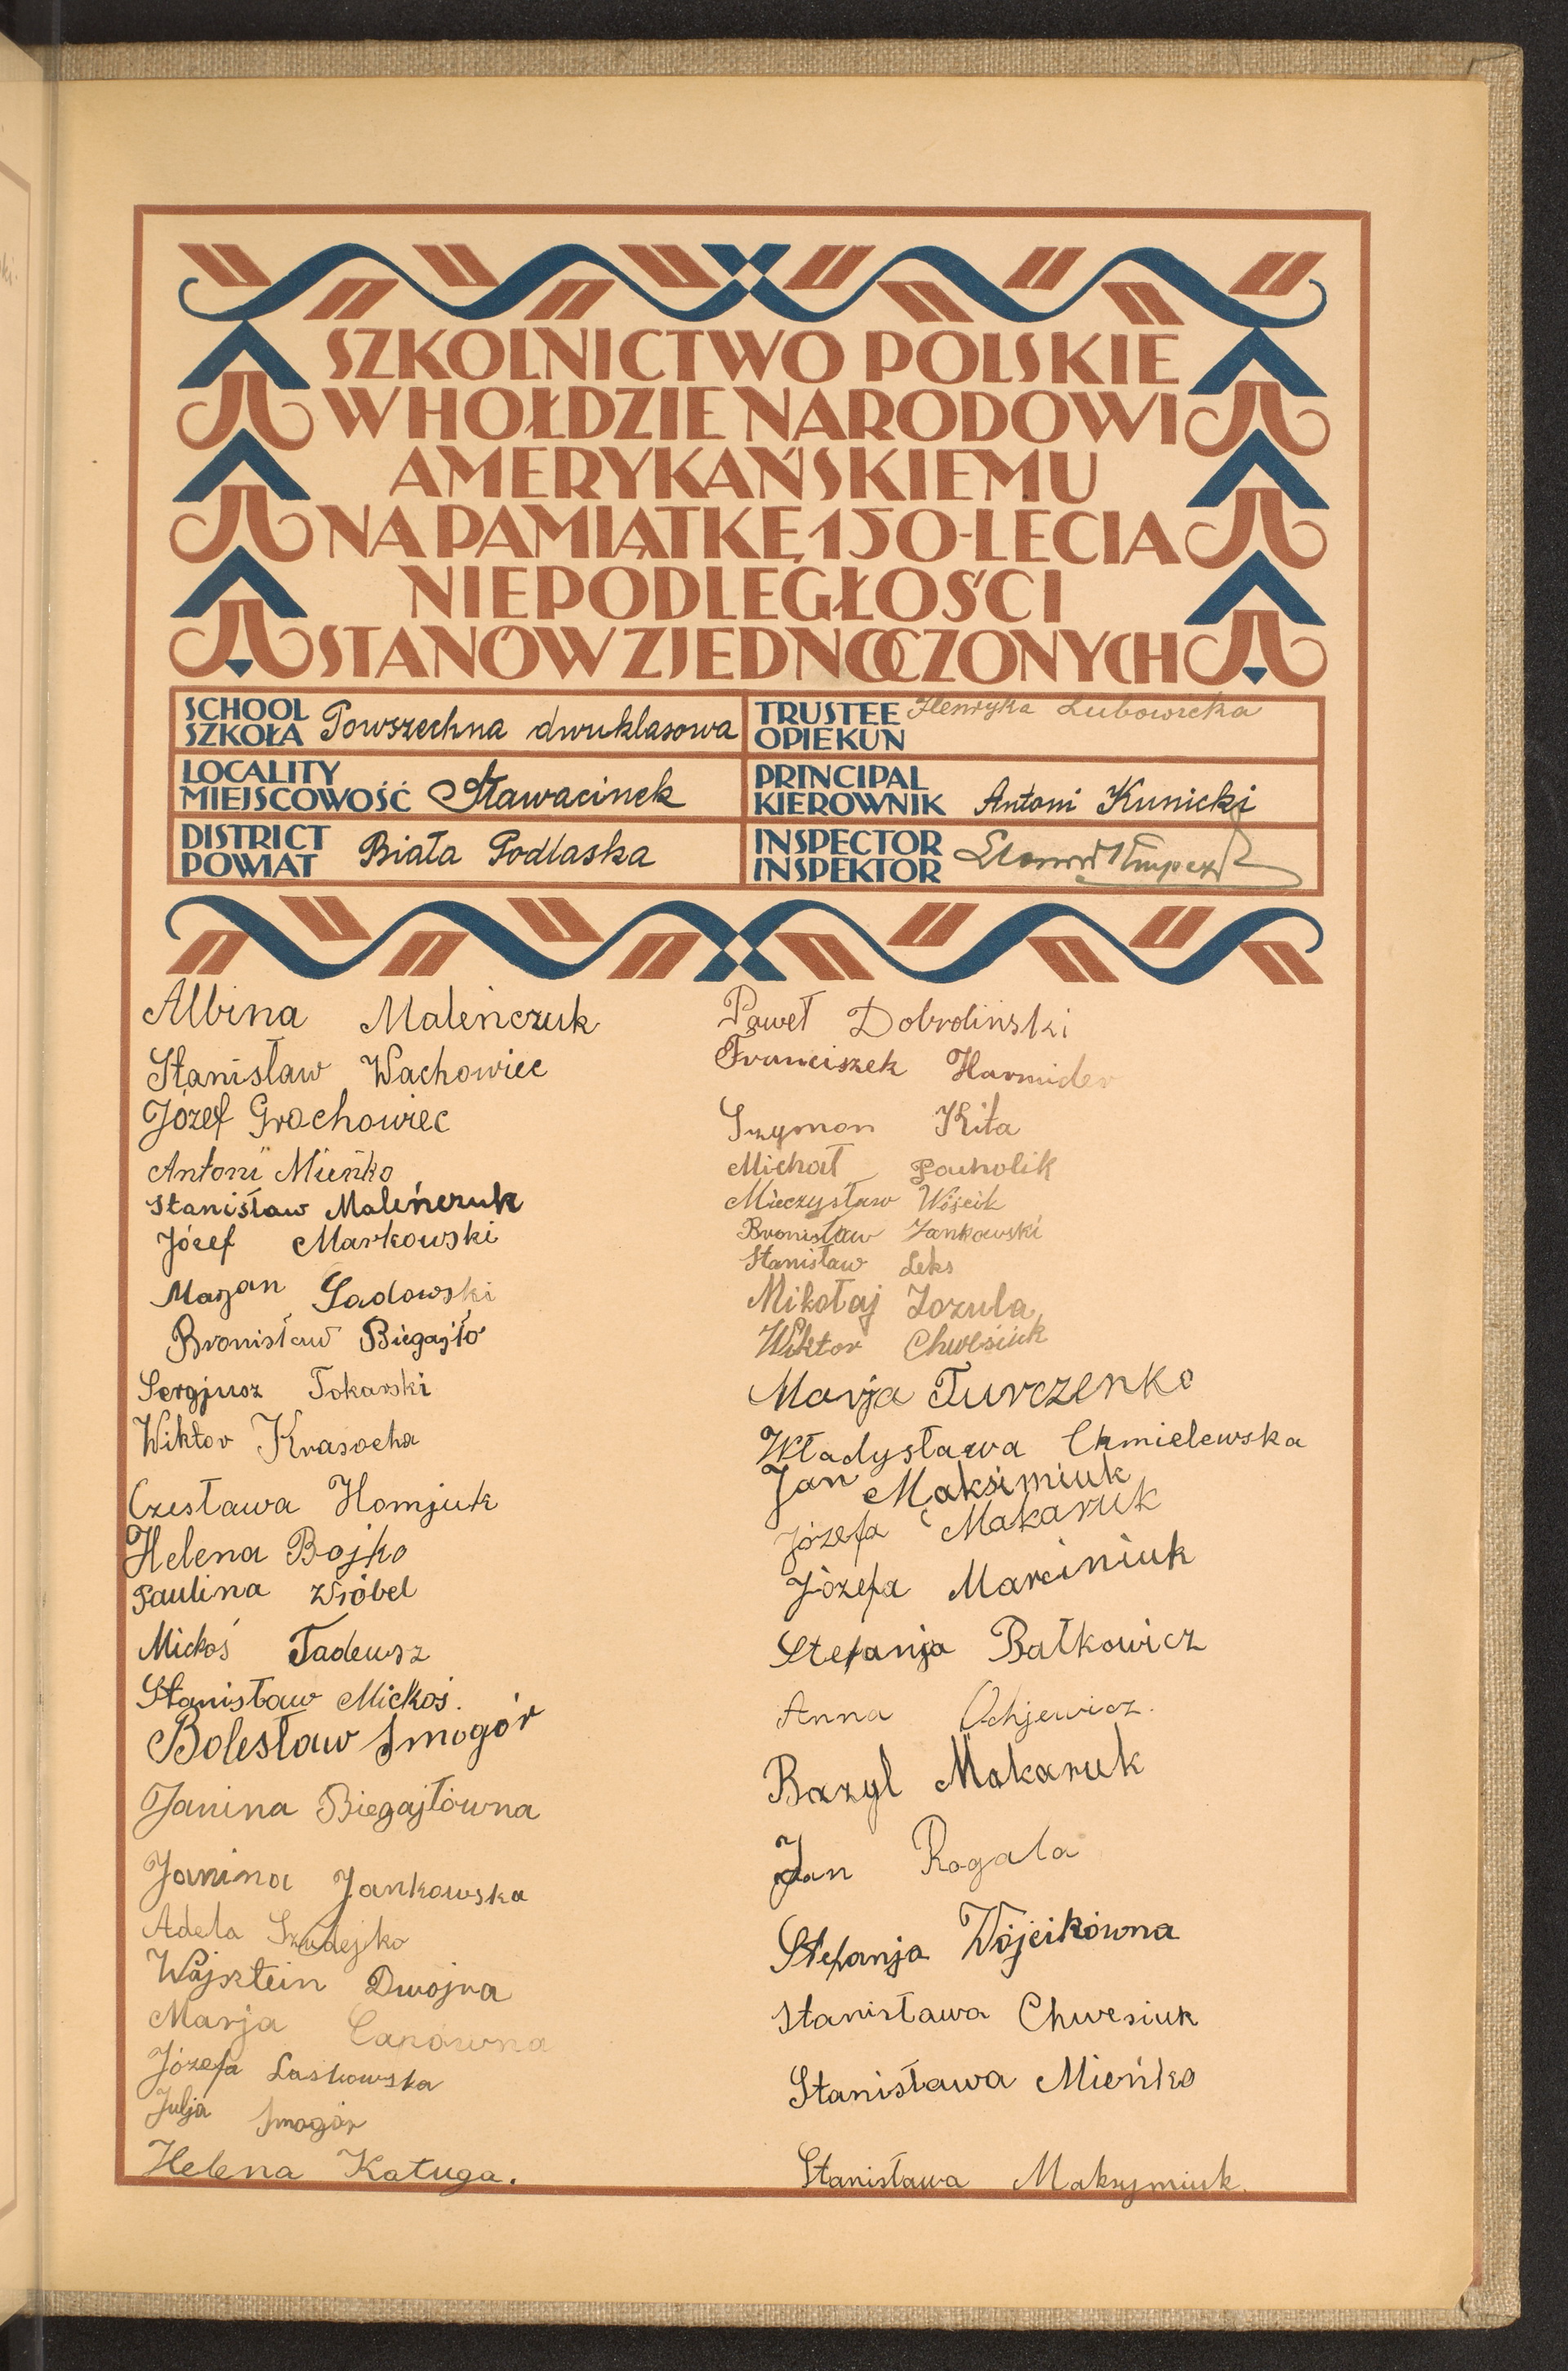 SZKOLNICTWO POLSKIE
W HOŁDZIE NARODOWI
AMERYKAŃSKIEMU
NA PAMIĄTKĘ 150-LECIA
NIEPODLEGŁOŚCI
STANÓW ZJEDNOCZONYCH
SCHOOL
SZKOŁA Powszechna dwuklasowa
TRUSTEE
OPIEKUN Henryka Lubowicka
LOCALITY
MIEJSCOWOŚĆ Sławacinek
PRINCIPAL
KIEROWNIK Antoni Kunicki
DISTRICT
POWIAT Biała Podlaska
INSPECTOR
INSPEKTOR
Albina Maleńczuk
Stanisław Wachowiec
Józef Grochowiec
Antoni Mieńko
Stanisław Maleńczuk
Józef Markowski
Mazan Sadowski
Bronisław Biegajło
Sergjusz Tokarski
Wiktor Krasocha
Czesława Homjuk
Helena Bojko
Paulina Wróbel
Mickoś Tadeusz
Stanisław Mickoś.
Bolesław Smogór
Janina Biegajłówna
Janina Jankowska
Adela Szudejko
Wajsztein Dwojra
Marja Capówna
Józefa Laskowska
Julja Smogór
Helena Kaługa.
Paweł Dobroliński
Franciszek Harmider
Szymon Kita
Michał Pacholik
Mieczysław Wójcik
Bronisław Jankowski
Stanisław Leks
Mikołaj Jozula
Wiktor Chwesiuk
Marja Turczenko
Władysława Chmielewska
Jan Maksimiuk
Józefa Makaruk
Józefa Marciniuk
Stefanja Bałkowicz
Anna Ochjewicz.
Bazyl Makaruk
Jan Rogala
Stefanja Wójcikówna
Stanisława Chwesiuk
Stanisława Mieńko
Stanisława Maksymiuk.